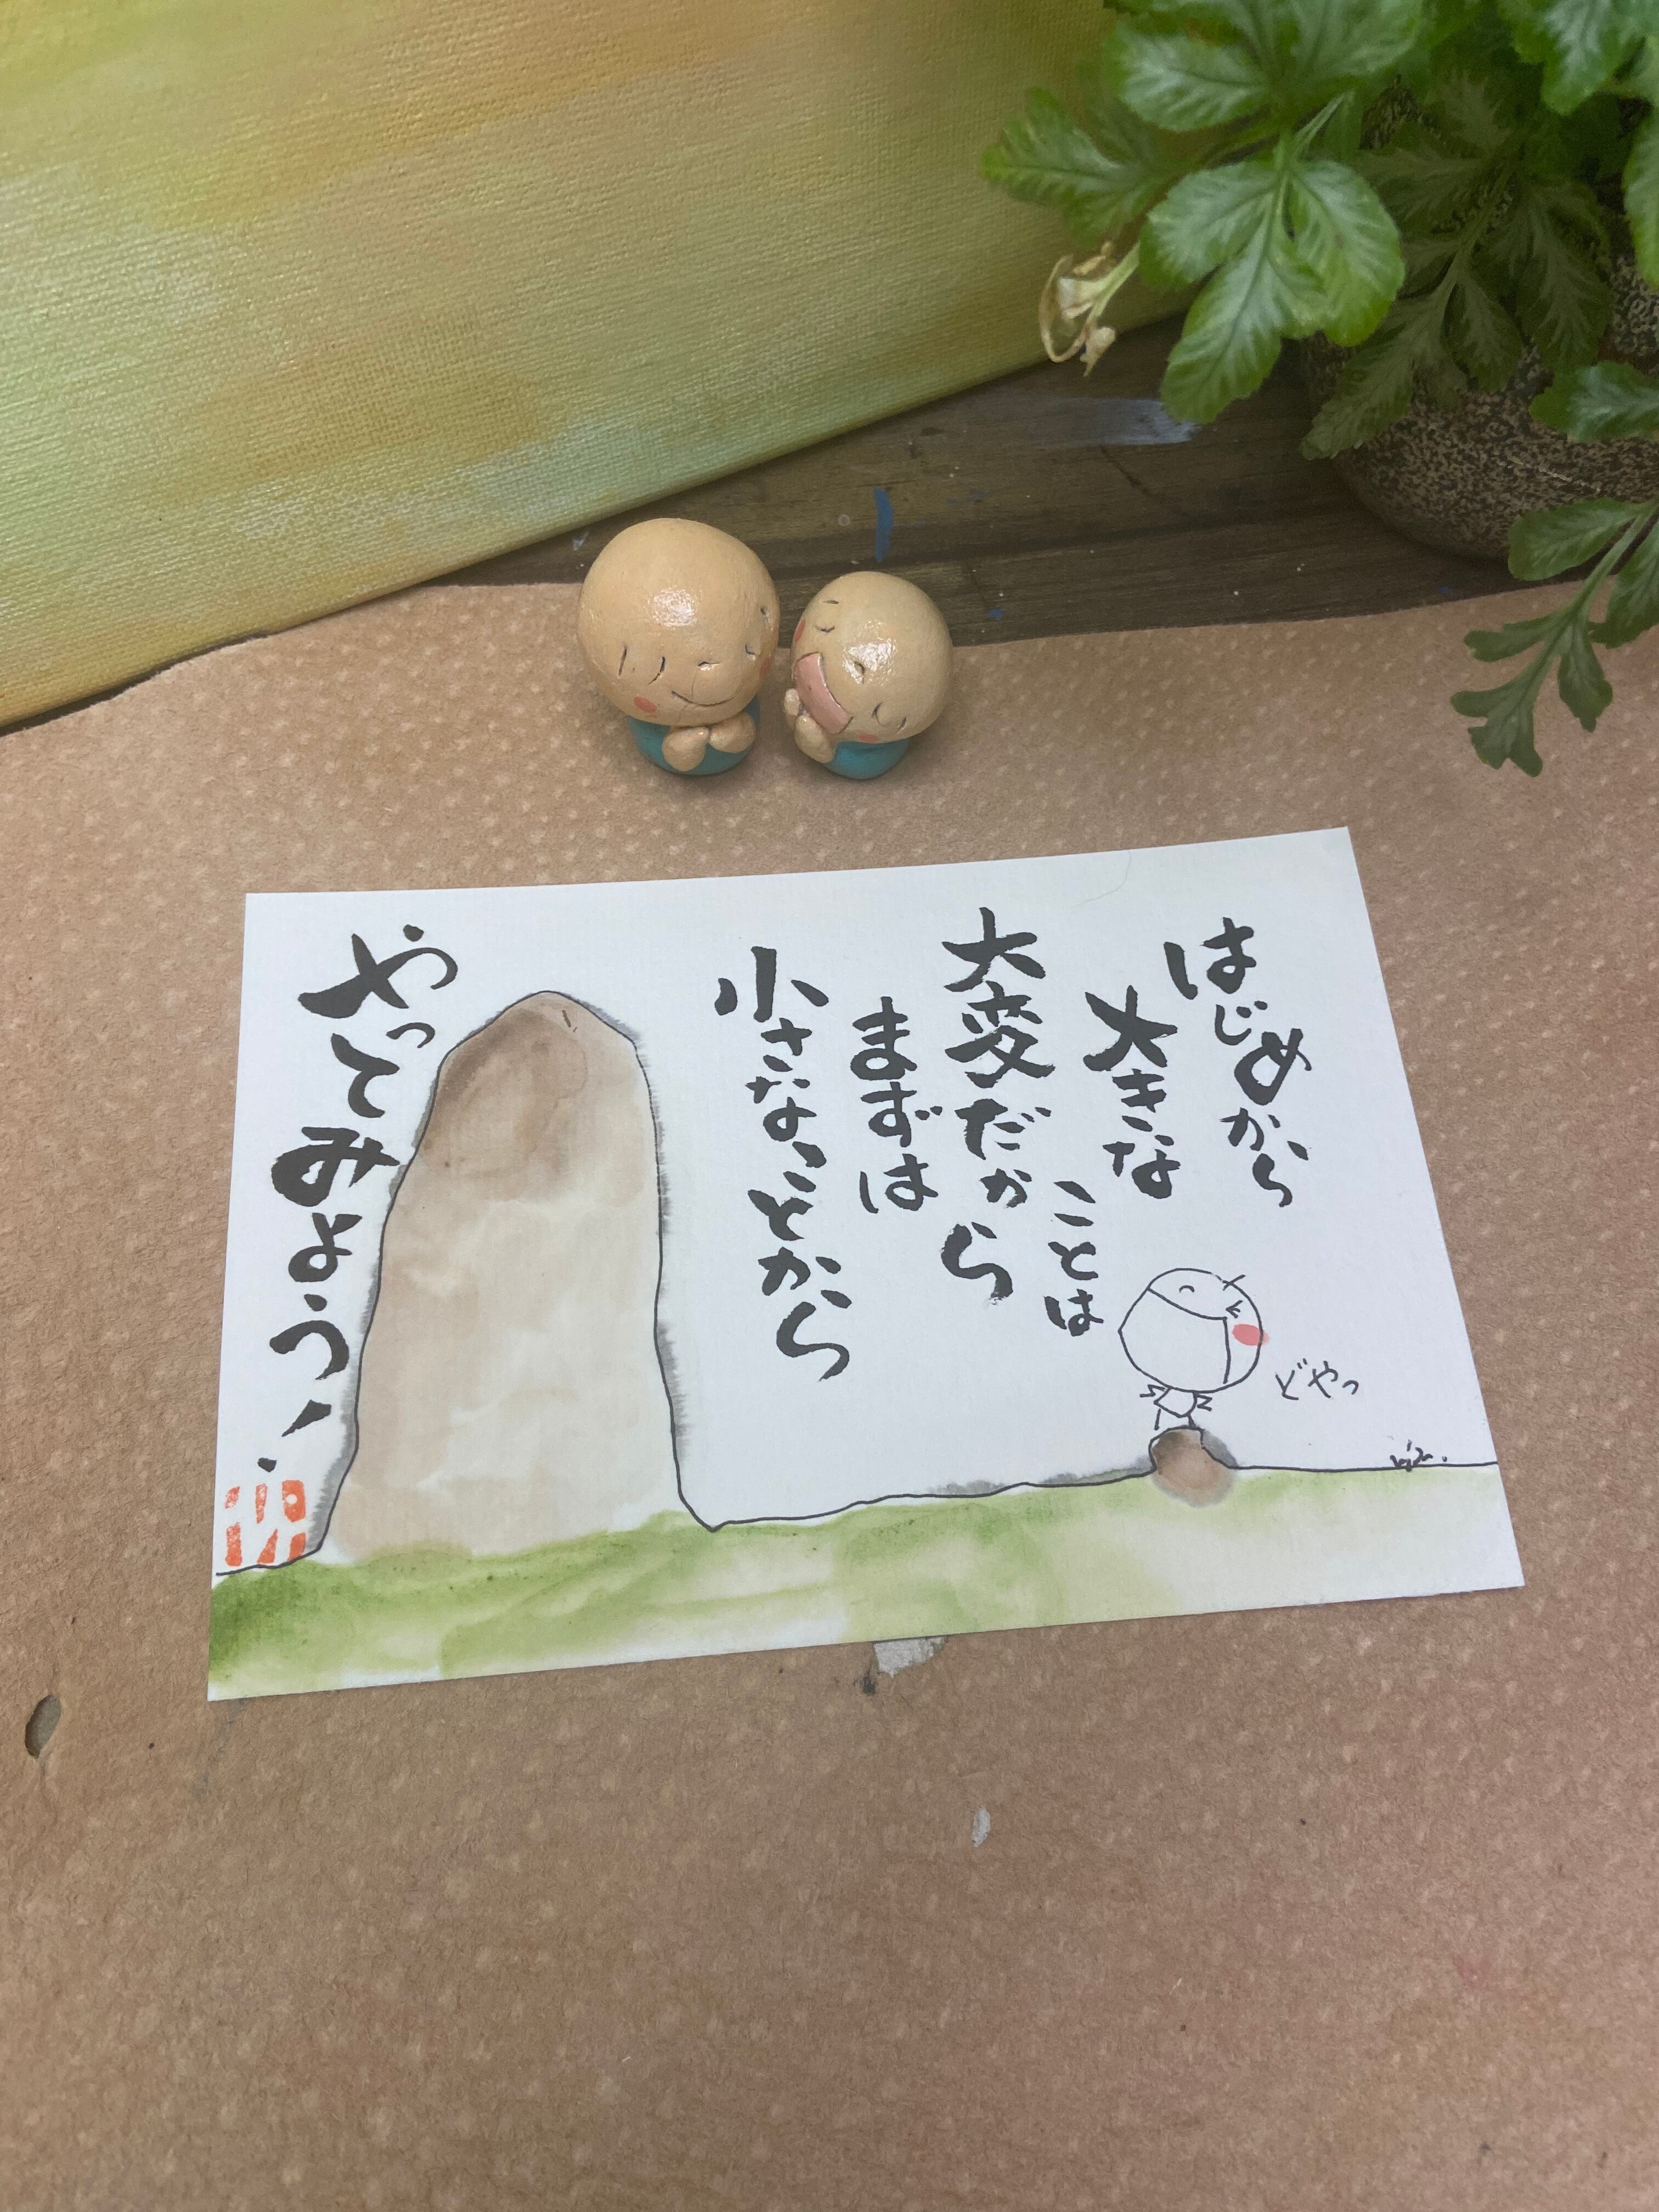 はじめから
大きな
ことは
大変だから
まずは
小さなことから
やってみよう！
どやっ